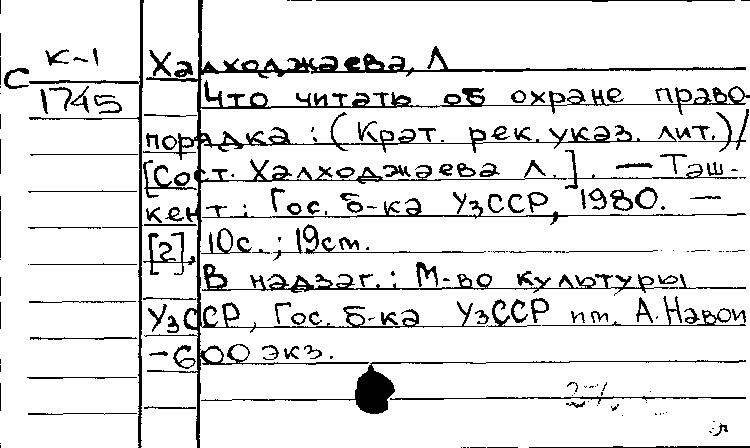 С К-1
1745
Халходжаева, Л
Что читать об охране право-
порядка : (Крат. рек. указ. лит.)/
[Сост. Халходжаева Л.]. — Таш-
кент : Гос. б-ка УзССР, 1980. —
[2], 10с. ; 19cm.
В надзаг. : М-во культуры
УзССР, Гос. б-ка УзССР им. А.Навои
-600 экз.